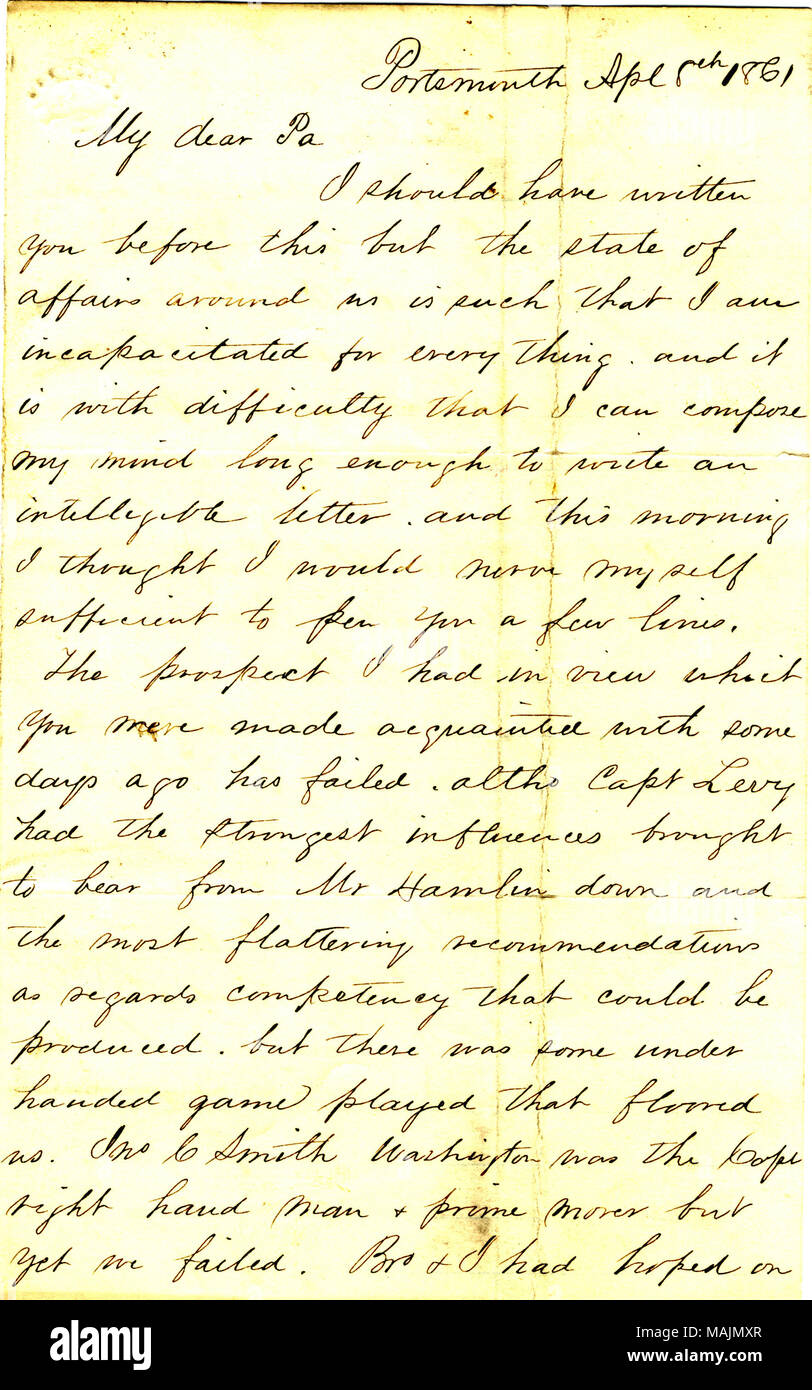 Portsmouth Apl 8th 1861
My dear Pa
I should have written
you before this but the state of
affairs around us is such that I am
incapacitated for every thing. and it
is with difficulty that I can compose
my mind long enough to write an
intellegible letter. and this morning
I thought I would nerve myself
sufficient to pen you a few lines.
The prospect I had in view which
you were made acquainted with some
days ago has failed. altho Capt Levy
had the strongest influences brought
to bear from Mr Hamlin down and
the most flattering recommendations
as regards competency that could be
produced. but there was some under
handed game played that floored
us. Jno C Smith Washington was the Capt
right hand man & prime mover but
yet we failed. Bro & I had hoped on
alamy
Image ID: MAJMXR
www.alamy.com